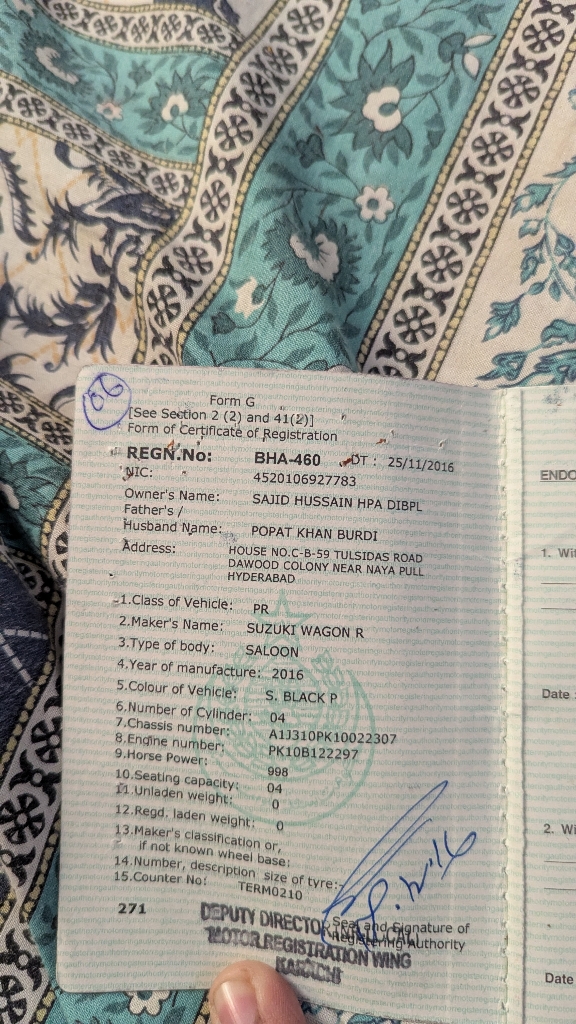 06
Form G
[See Section 2 (2) and 41(2)]
Form of Certificate of Registration
REGN.No: BHA-460 DT : 25/11/2016
NIC: 4520106927783
Owner's Name: SAJID HUSSAIN HPA DIBPL
Father's /
Husband Name: POPAT KHAN BURDI
Address: HOUSE NO.C-B-59 TULSIDAS ROAD
DAWOOD COLONY NEAR NAYA PULL
HYDERABAD
1.Class of Vehicle: PR
2.Maker's Name: SUZUKI WAGON R
3.Type of body: SALOON
4.Year of manufacture: 2016
5.Colour of Vehicle: S. BLACK P
6.Number of Cylinder: 04
7.Chassis number: A1J310PK10022307
8.Engine number: PK10B122297
9.Horse Power: 998
10.Seating capacity: 04
11.Unladen weight: 0
12.Regd. laden weight: 0
13.Maker's classification or,
if not known wheel base:
14.Number, description size of tyre:-
15.Counter No: TERM0210
271
Seal and Signature of
Registering Authority
DEPUTY DIRECTOR
MOTOR REGISTRATION WING
KARACHI
ENDO
1. Wi
Date
2. Wi
Date